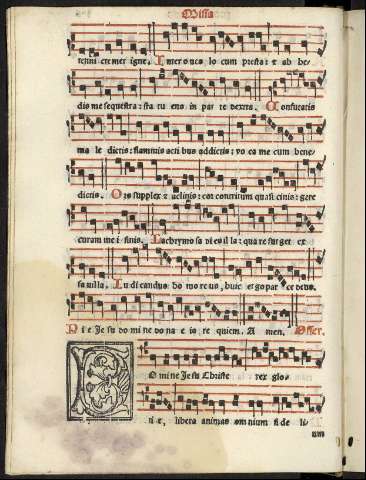 Missa
remi cremer igne. Inter oues lo cum presta: et ab he-
dis me sequestra: sta tu ens in par te dextra. Confutatis
ma le dictis: flammis acri bus addictis: vo ca me cum bene-
dictis. Oro supplex et acclinis: cor contritum quasi cinis: gere
curam mei finis. Lachrymo sa di es il la: qua re sur get ex
fauilla. Iu di candus ho mo re us, huic ergo par ce deus.
Pi e Je su do mi ne do na e is re quiem. A men. Offer.
D
o mi ne Je su Christe rex glo-
ri e, libera animas omnium fi de li-
um